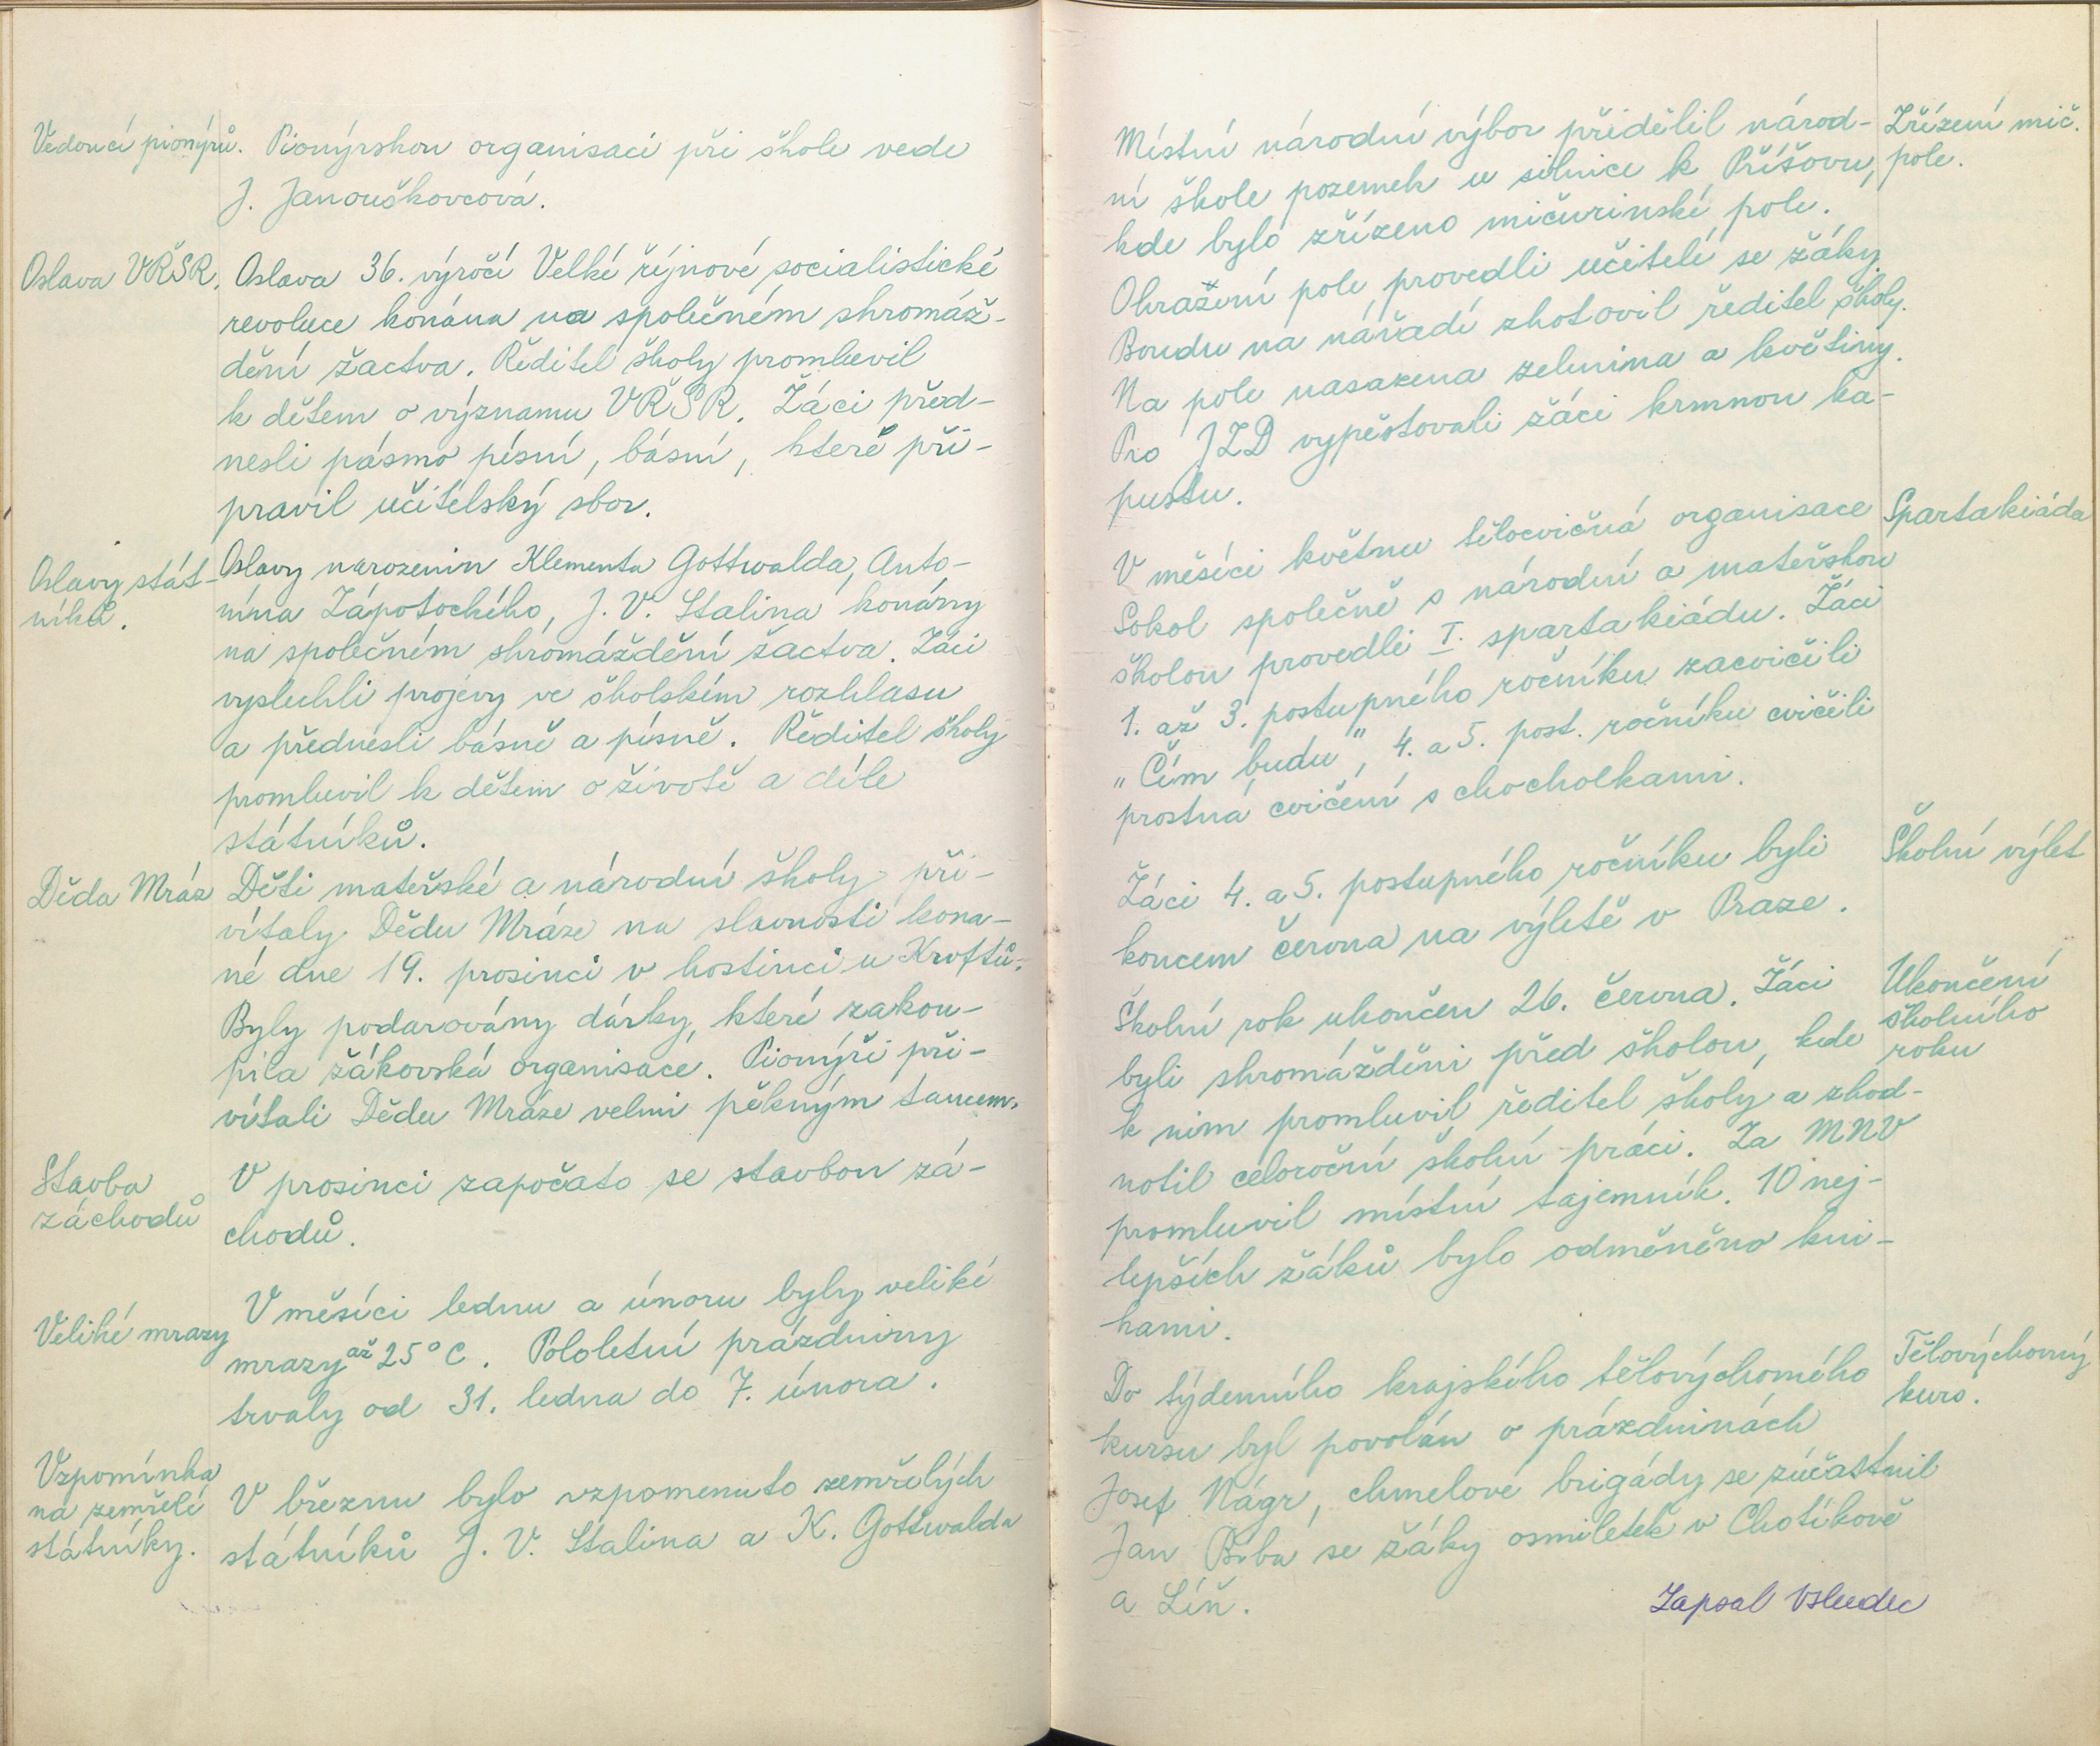 Vedoucí pionýrů.
Pionýrskou organisaci při škole vede
J. Janouškovcová.
Oslava VŘSR.
Oslava 36. výročí Velké říjnové socialistické
revoluce konána na společném shromáž-
dění žactva. Ředitel školy promluvil
k dětem o významu VŘSR. Žáci před-
nesli pásmo písní, básní, které při-
pravil učitelský sbor.
Oslavy stát-
níků.
Oslavy narozenin Klementa Gottwalda, Anto-
nína Zápotockého, J. V. Stalina konány
na společném shromáždění žactva. Žáci
vyslechli projevy ve školském rozhlasu
a přednesli básně a písně. Ředitel školy
promluvil k dětem o životě a díle
státníků.
Děda Mráz
Děti mateřské a národní školy při-
vítaly Dědu Mráze na slavnosti kona-
né dne 19. prosinci v hostinci u Kroftů.
Byly podarovány dárky, které zakou-
pila žákovská organisace. Pionýři při-
vítali Dědu Mráze velmi pěkným tancem.
Stavba
záchodů
V prosinci započato se stavbou zá-
chodů.
Veliké mrazy
V měsíci lednu a únoru byly veliké
mrazy až 25° C. Pololetní prázdniny
trvaly od 31. ledna do 7. února.
Vzpomínka
na zemřelé
státníky.
V březnu bylo vzpomenuto zemřelých
státníků J. V. Stalina a K. Gottwalda
Místní národní výbor přidělil národ-
ní škole pozemek u silnice k Příšovu,
kde bylo zřízeno mičurinské pole.
Ohražení pole provedli učitelé se žáky.
Boudu na nářadí zhotovil ředitel školy.
Na pole nasazena zelenina a květiny.
Pro JZD vypěstovali žáci krmnou ka-
pustu.
Zřízení mič.
pole.
V měsíci květnu tělocvičná organisace
Sokol společně s národní a mateřskou
školou provedli I. spartakiádu. Žáci
1. až 3. postupného ročníku zacvičili
„Čím budu", 4. a 5. post. ročníku cvičili
prostná cvičení s chocholkami.
Spartakiáda
Žáci 4. a 5. postupného ročníku byli
koncem června na výletě v Praze.
Školní výlet
Školní rok ukončen 26. června. Žáci
byli shromážděni před školou, kde
k nim promluvil ředitel školy a zhod-
notil celoroční školní práci. Za MNV
promluvil místní tajemník. 10 nej-
lepších žáků bylo odměněno kni-
hami.
Ukončení
školního
roku
Do týdenního krajského tělovýchovného
kursu byl povolán o prázdninách
Josef Nágr, chmelové brigády se zúčastnil
Jan Bíba se žáky osmiletek v Chotíkově
a Líň.
Tělovýchovný
kurs.
Zapsal